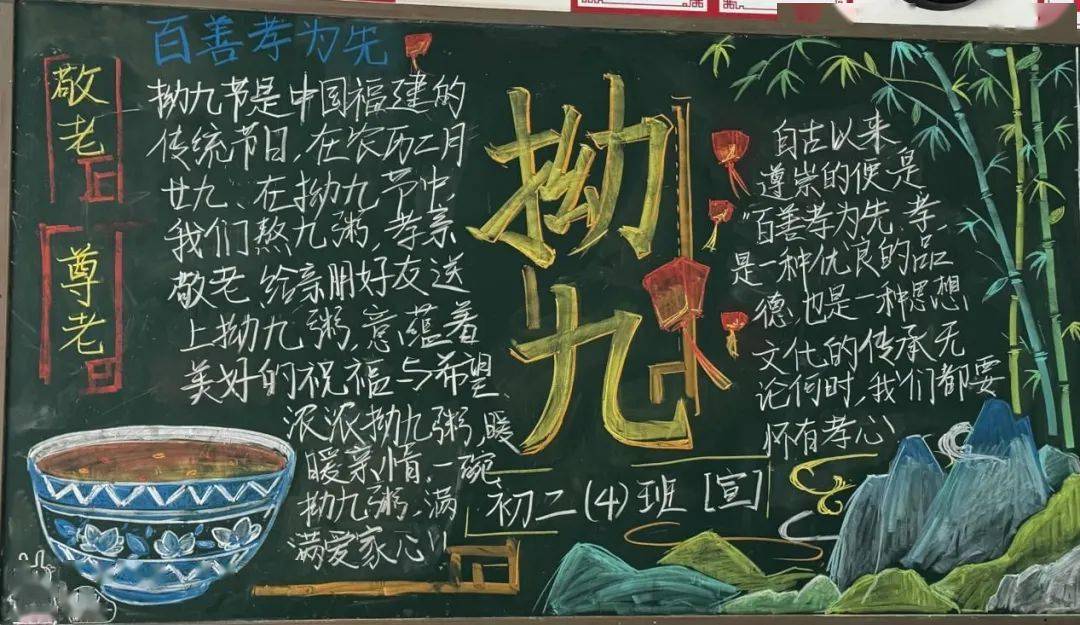 百善孝为先
敬老
尊老
拗九节是中国福建的
传统节日,在农历二月
廿九、在拗九节中,
我们熬九粥,孝亲
敬老,给亲朋好友送
上拗九粥,意蕴着
美好的祝福与希望、
浓浓拗九粥,暖
暖亲情.一碗
拗九粥,满
满爱家心!
拗九
初二(4)班[宣]
自古以来
遵崇的便是
"百善孝为先.孝,
是一种优良的品
德,也是一种思想,
文化的传承无
论何时,我们都要
怀有孝心